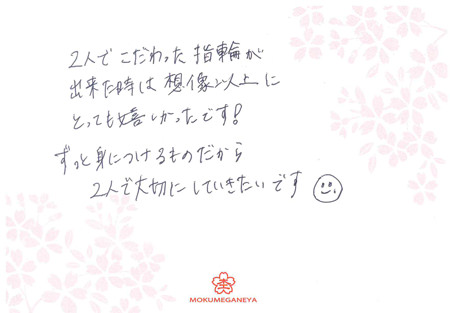 2人で こだわった 指輪が
出来た時は 想像以上に
とっても嬉しかったです!
ずっと身につけるものだから
2人で大切にしていきたいです
MOKUMEGANEYA